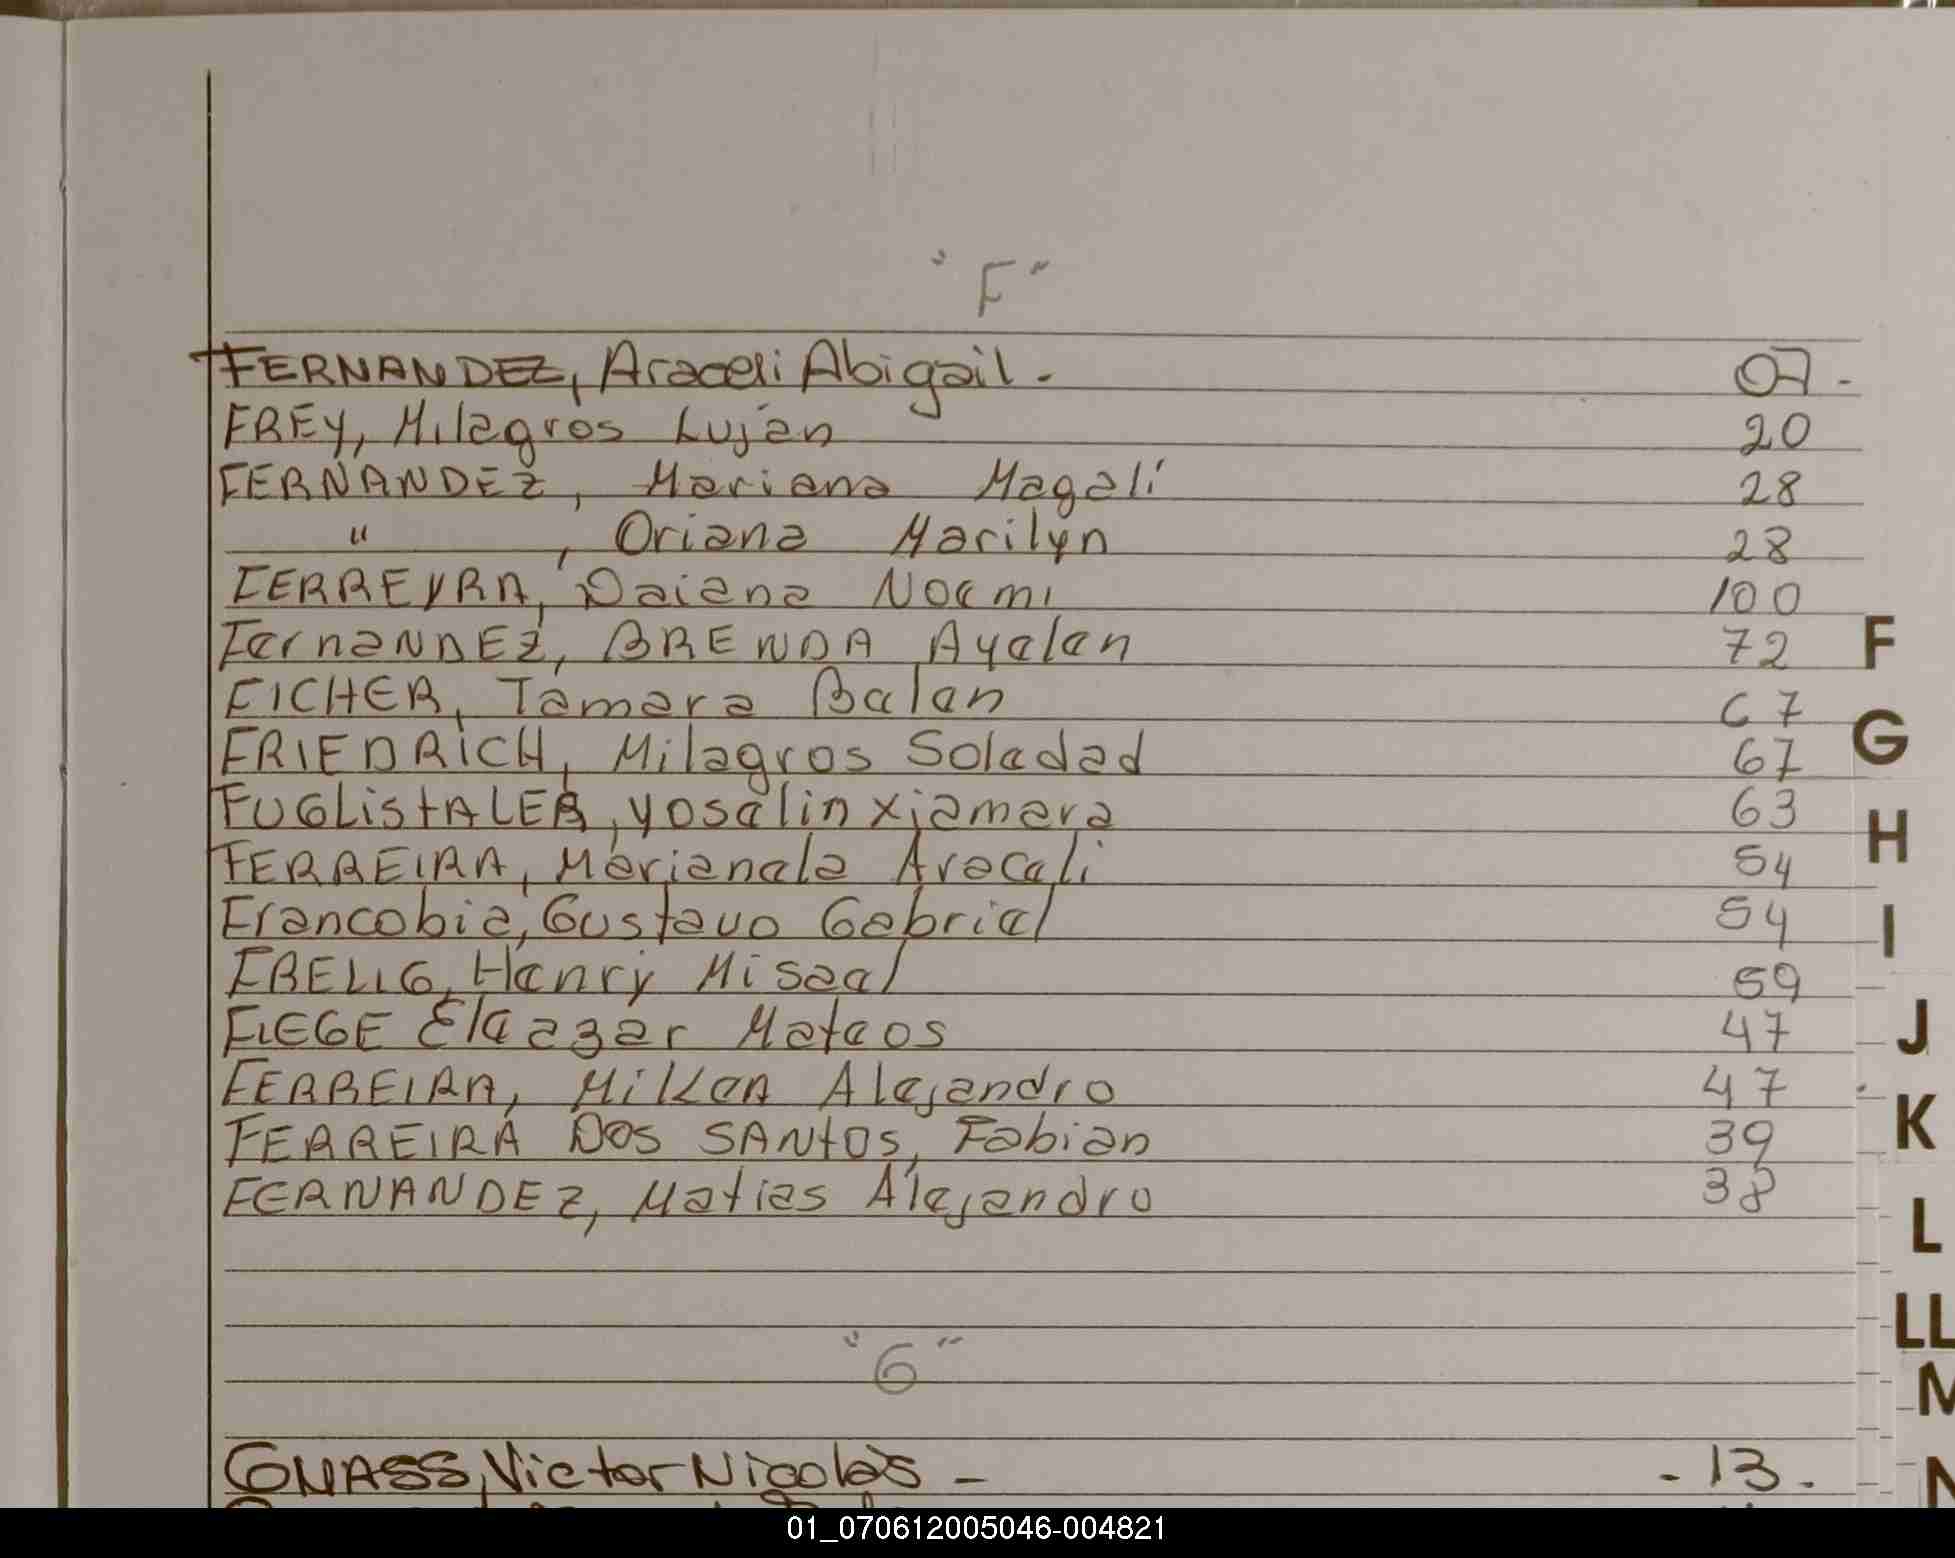 "F"
FERNANDEZ, Araceli Abigail. 07.
FREY, Milagros Luján 20
FERNANDEZ, Mariana Magalí 28
" , Oriana Marilyn 28
FERREYRA, Daiana Noemi 100
FernaNDEZ, BRENDA Ayelen 72
FICHER, Tamara Belen 67
FRIEDRICH, Milagros Soledad 67
FUGListALER, yoselin xiamara 63
FERREIRA, Marianela Araceli 54
Francobia, Gustavo Gabriel 54
Henry Misael 59
FLEGE Eleazar Mateos 47
FERREIRA, Milken Alejandro 47
FERREIRA DOS SANtOS, Fabian 39
FERNANDEZ, Matias Alejandro 38
"G"
GNASS, Victor Nicolás - - 13.
F
G
H
I
J
K
L
LL
M
N
01_070612005046-004821